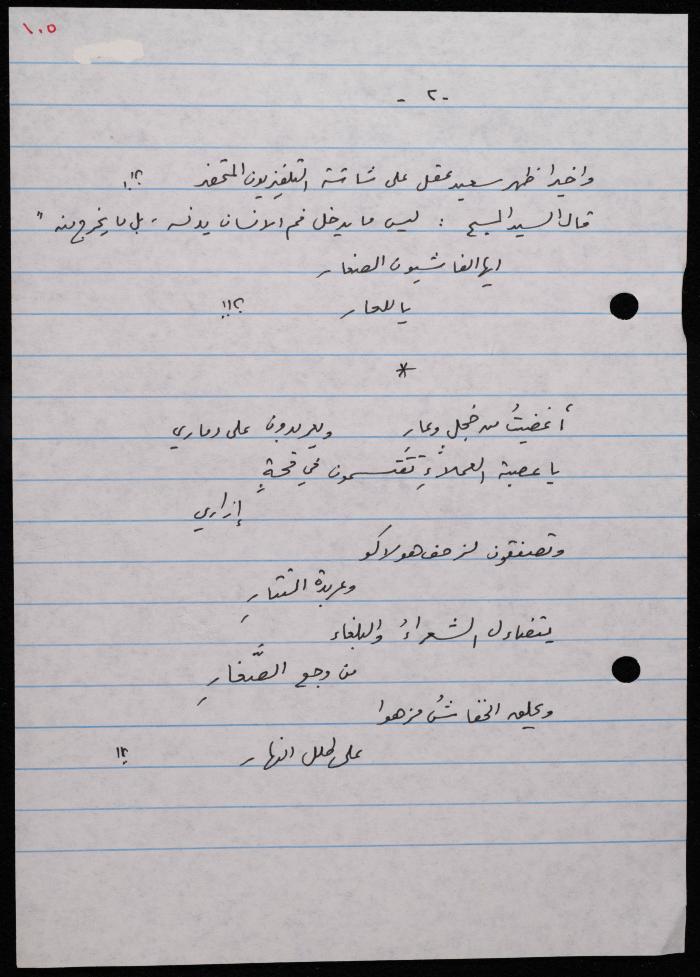 ١٠٥
- ٢ -
واخيرا ظهر سعيد عقل على شاشة التلفزيون المتحضر ؟!!
قال السيد المسيح : ليس ما يدخل فم الانسان يدنسه ، بل ما يخرج منه "
ايها الفاشيون الصغار
يا للعار ؟!!!
*
أغضيتُ من خجل وعار ويعربدون على دماري
يا عصبة العملاءِ تَقتسمون في قحةٍ
إزاري
وتصفقون لزحف هولاكو
وعربدة التتارِ
يتضاءل الشعراءُ والبلغاء
من وجع الصَّغارِ
ويحلق الخفاشُ مزهوا
على طلل النهار ؟!!